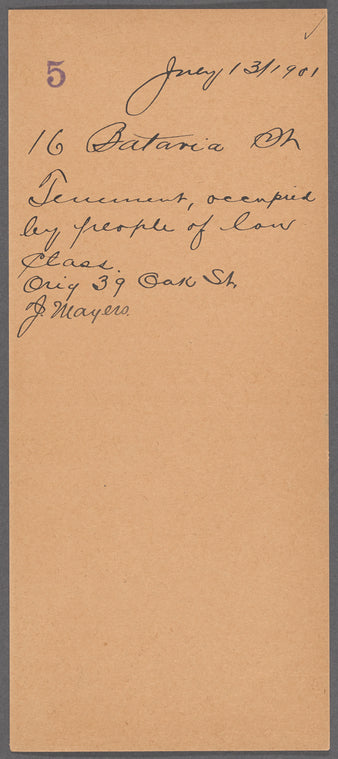 5
July 13/1901
16 Batavia St
Tenement, occupied
by people of low
class.
Orig 39 Oak St.
J. Mayers.